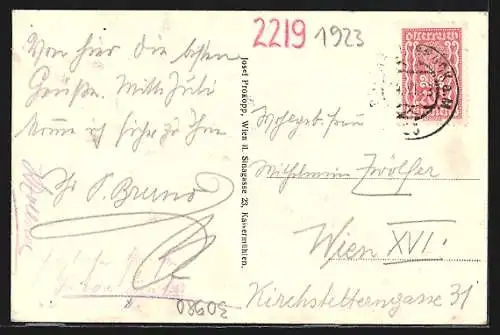 2219 1923
Von hier die besten
Grüße. Mitte Juli
komme ich sicher zu Ihnen
Ihr P. Bruno
Josef Prokopp, Wien II. Sinagasse 23, Kaisermühlen.
österreich
Wohlgeb. Frau
Wilhelmine Zwölfer
Wien XVI.
Kirchstetterngasse 31
30980